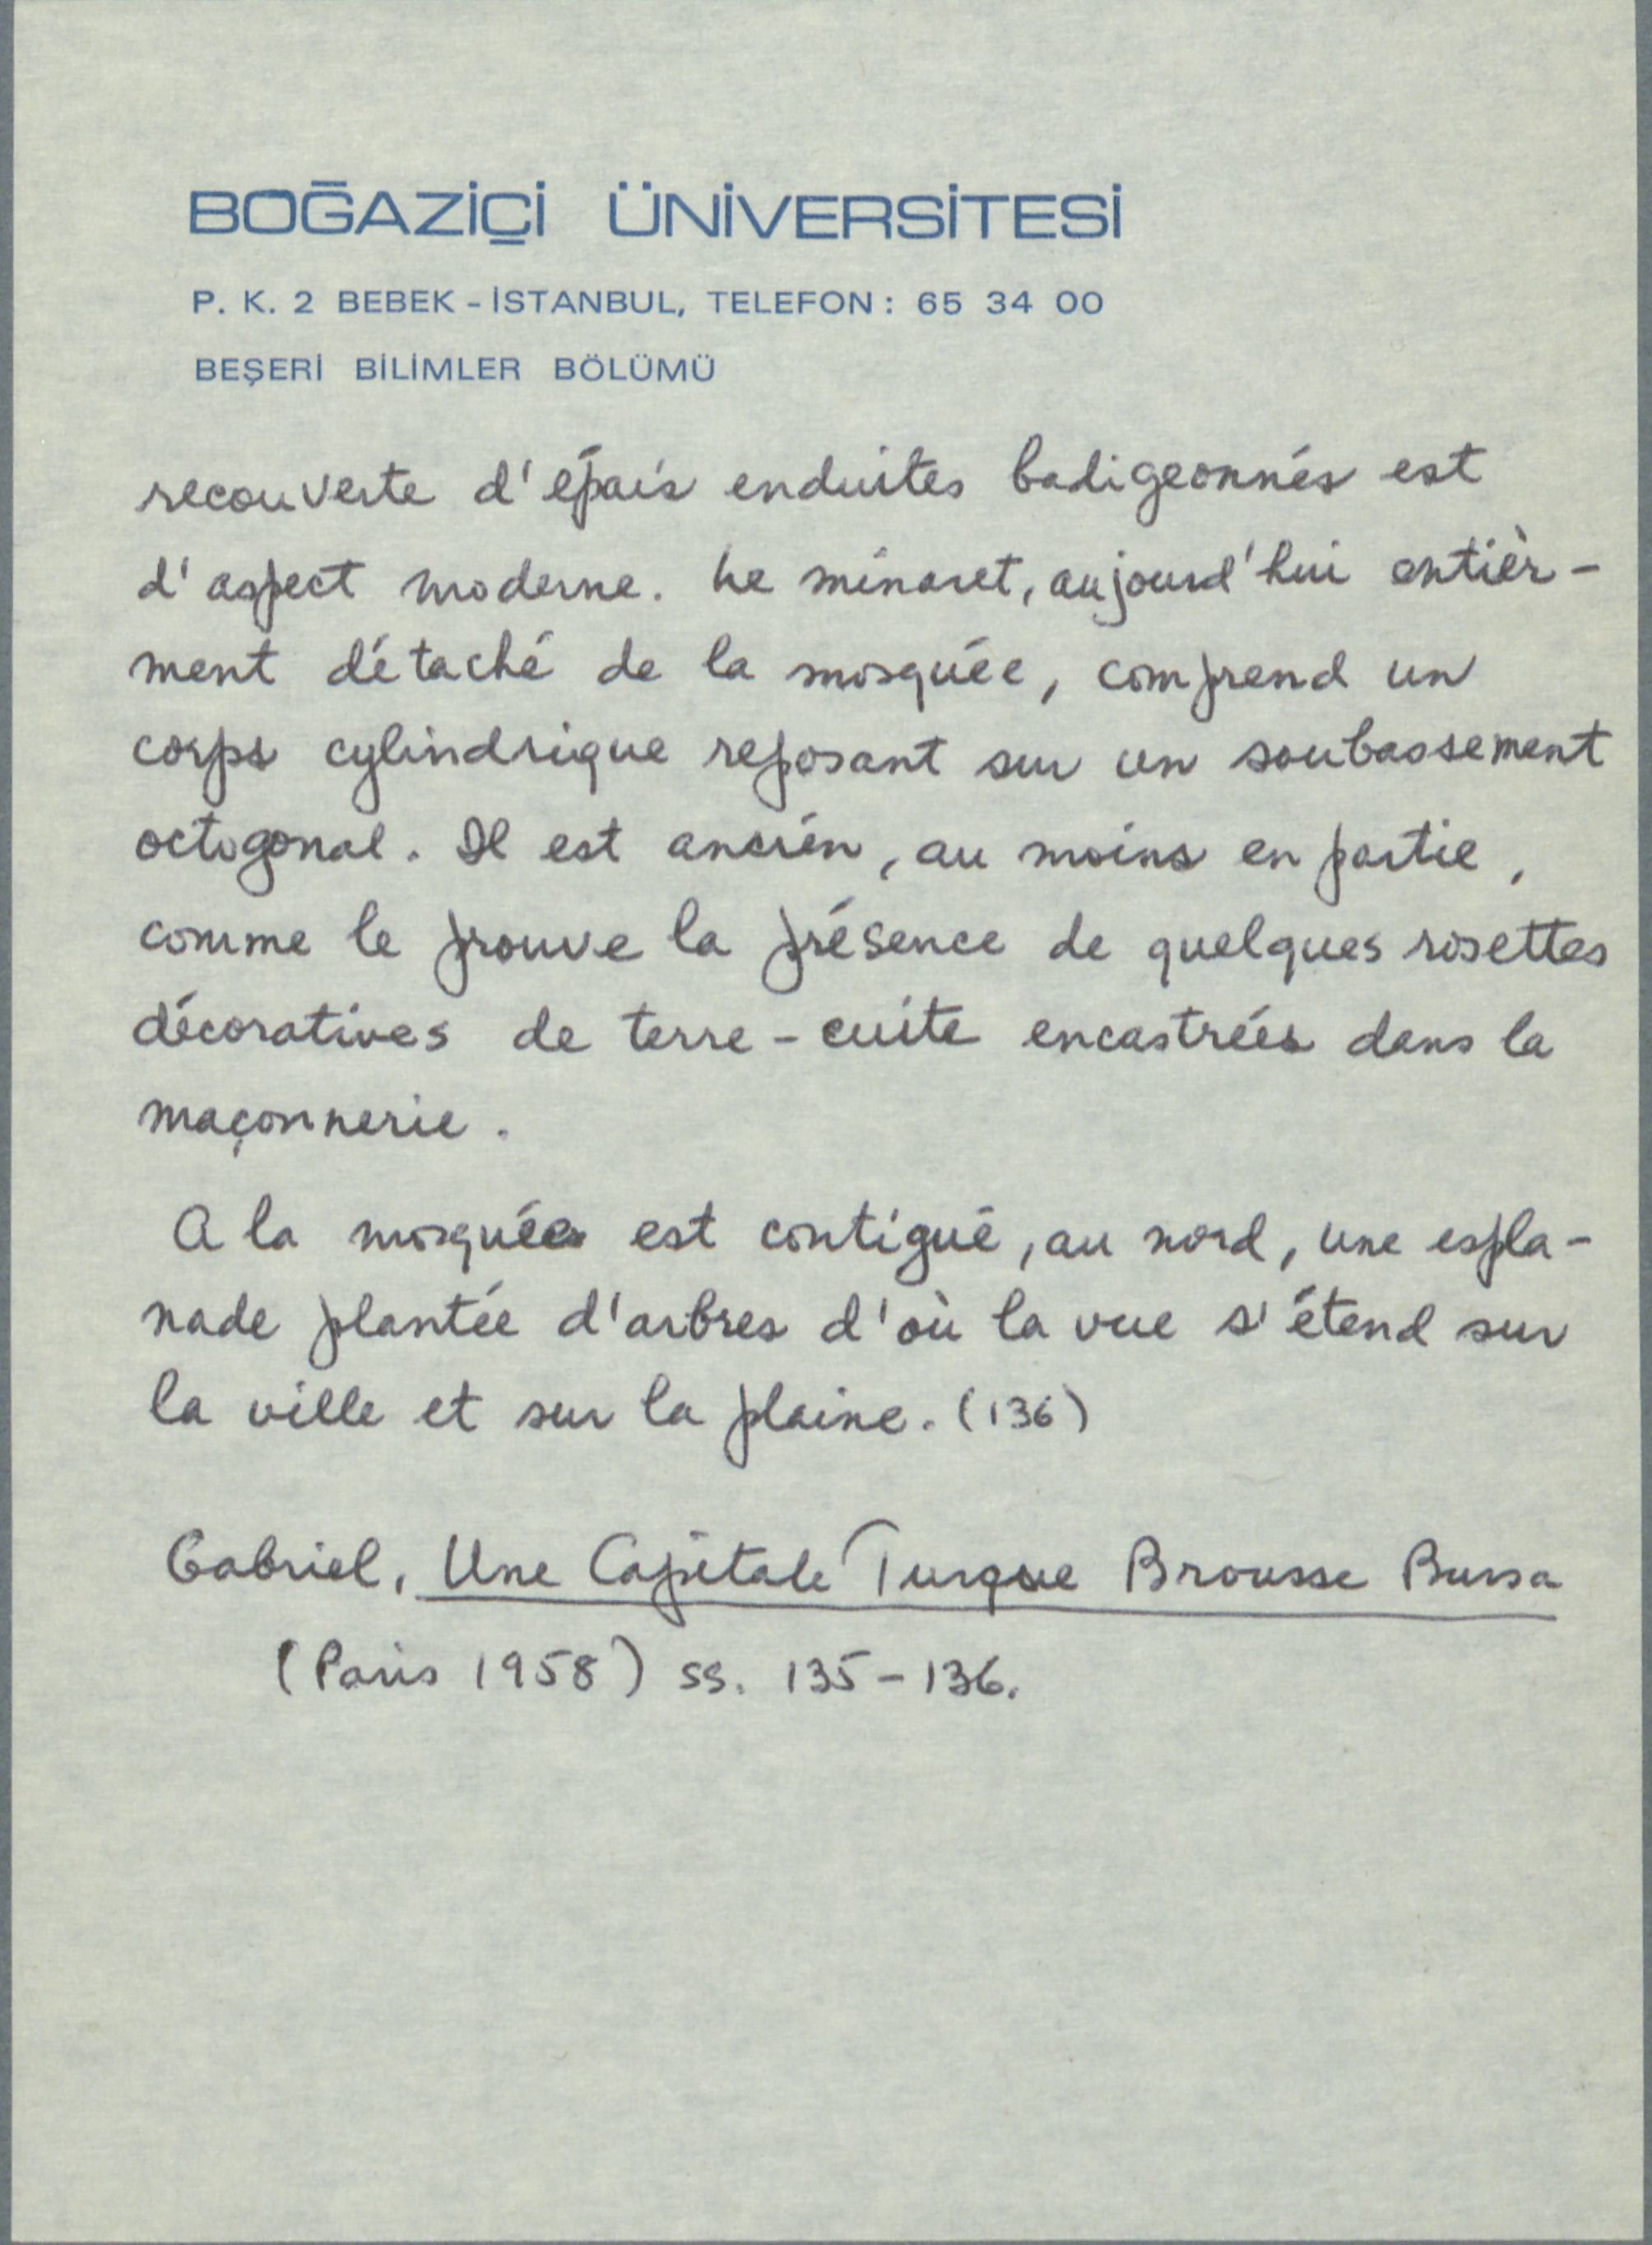 BOĞAZİÇİ ÜNİVERSİTESİ
P. K. 2 BEBEK - İSTANBUL, TELEFON : 65 34 00
BEŞERİ BİLİMLER BÖLÜMÜ
recouverte d'épais enduites badigeonnés est
d'aspect moderne. Le minaret, aujourd'hui entièr-
ment détaché de la mosquée, comprend un
corps cylindrique reposant sur un soubassement
octogonal. Il est ancien, au moins en partie,
comme le prouve la présence de quelques rosettes
décoratives de terre-cuite encastrées dans la
maçonnerie.
A la mosquée est contigué, au nord, une espla-
nade plantée d'arbres d'où la vue s'étend sur
la ville et sur la plaine. (136)
Gabriel, Une Capitale Turque Brousse Bursa
(Paris 1958) ss. 135-136.